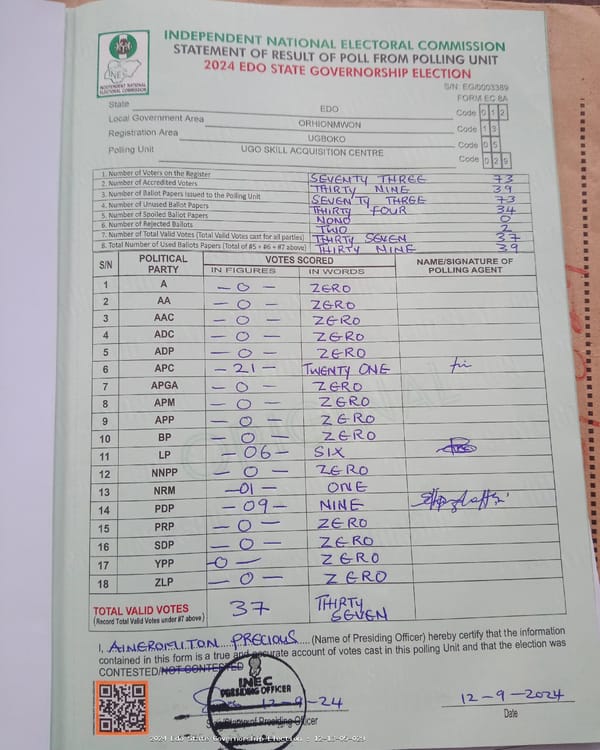 INEC
INDEPENDENT NATIONAL ELECTORAL COMMISSION
INDEPENDENT NATIONAL ELECTORAL COMMISSION
STATEMENT OF RESULT OF POLL FROM POLLING UNIT
2024 EDO STATE GOVERNORSHIP ELECTION
S/N: EG/0003389
FORM EC 8A
State EDO Code 0 1 2
Local Government Area ORHIONMWON Code 1 3
Registration Area UGBOKO Code 0 5
Polling Unit UGO SKILL ACQUISITION CENTRE Code 0 2 9
1. Number of Voters on the Register SEVENTY THREE 73
2. Number of Accredited Voters THIRTY NINE 39
3. Number of Ballot Papers Issued to the Polling Unit SEVENTY THREE 73
4. Number of Unused Ballot Papers THIRTY FOUR 34
5. Number of Spoiled Ballot Papers NONO 0
6. Number of Rejected Ballots TWO 2
7. Number of Total Valid Votes (Total Valid Votes cast for all parties) THIRTY SEVEN 37
8. Total Number of Used Ballots Papers (Total of #5 + #6 + #7 above) THIRTY NINE 39
S/N POLITICAL PARTY VOTES SCORED IN FIGURES IN WORDS NAME/SIGNATURE OF POLLING AGENT
1 A - 0 - ZERO
2 AA - 0 - ZERO
3 AAC - 0 - ZERO
4 ADC - 0 - ZERO
5 ADP - 0 - ZERO
6 APC - 21 - TWENTY ONE
7 APGA - 0 - ZERO
8 APM - 0 - ZERO
9 APP - 0 - ZERO
10 BP - 0 - ZERO
11 LP - 06 - SIX
12 NNPP - 0 - ZERO
13 NRM - 01 - ONE
14 PDP - 09 - NINE
15 PRP - 0 - ZERO
16 SDP - 0 - ZERO
17 YPP - 0 - ZERO
18 ZLP - 0 - ZERO
TOTAL VALID VOTES 37 THIRTY SEVEN
(Record Total Valid Votes under #7 above)
I, PRECIOUS (Name of Presiding Officer) hereby certify that the information
contained in this form is a true and accurate account of votes cast in this polling Unit and that the election was
CONTESTED/NOT CONTESTED
INEC
PRESIDING OFFICER
12-9-24 12-9-2024
Presiding Officer Date
2024 Edo State Governorship Election : 12-13-05-029